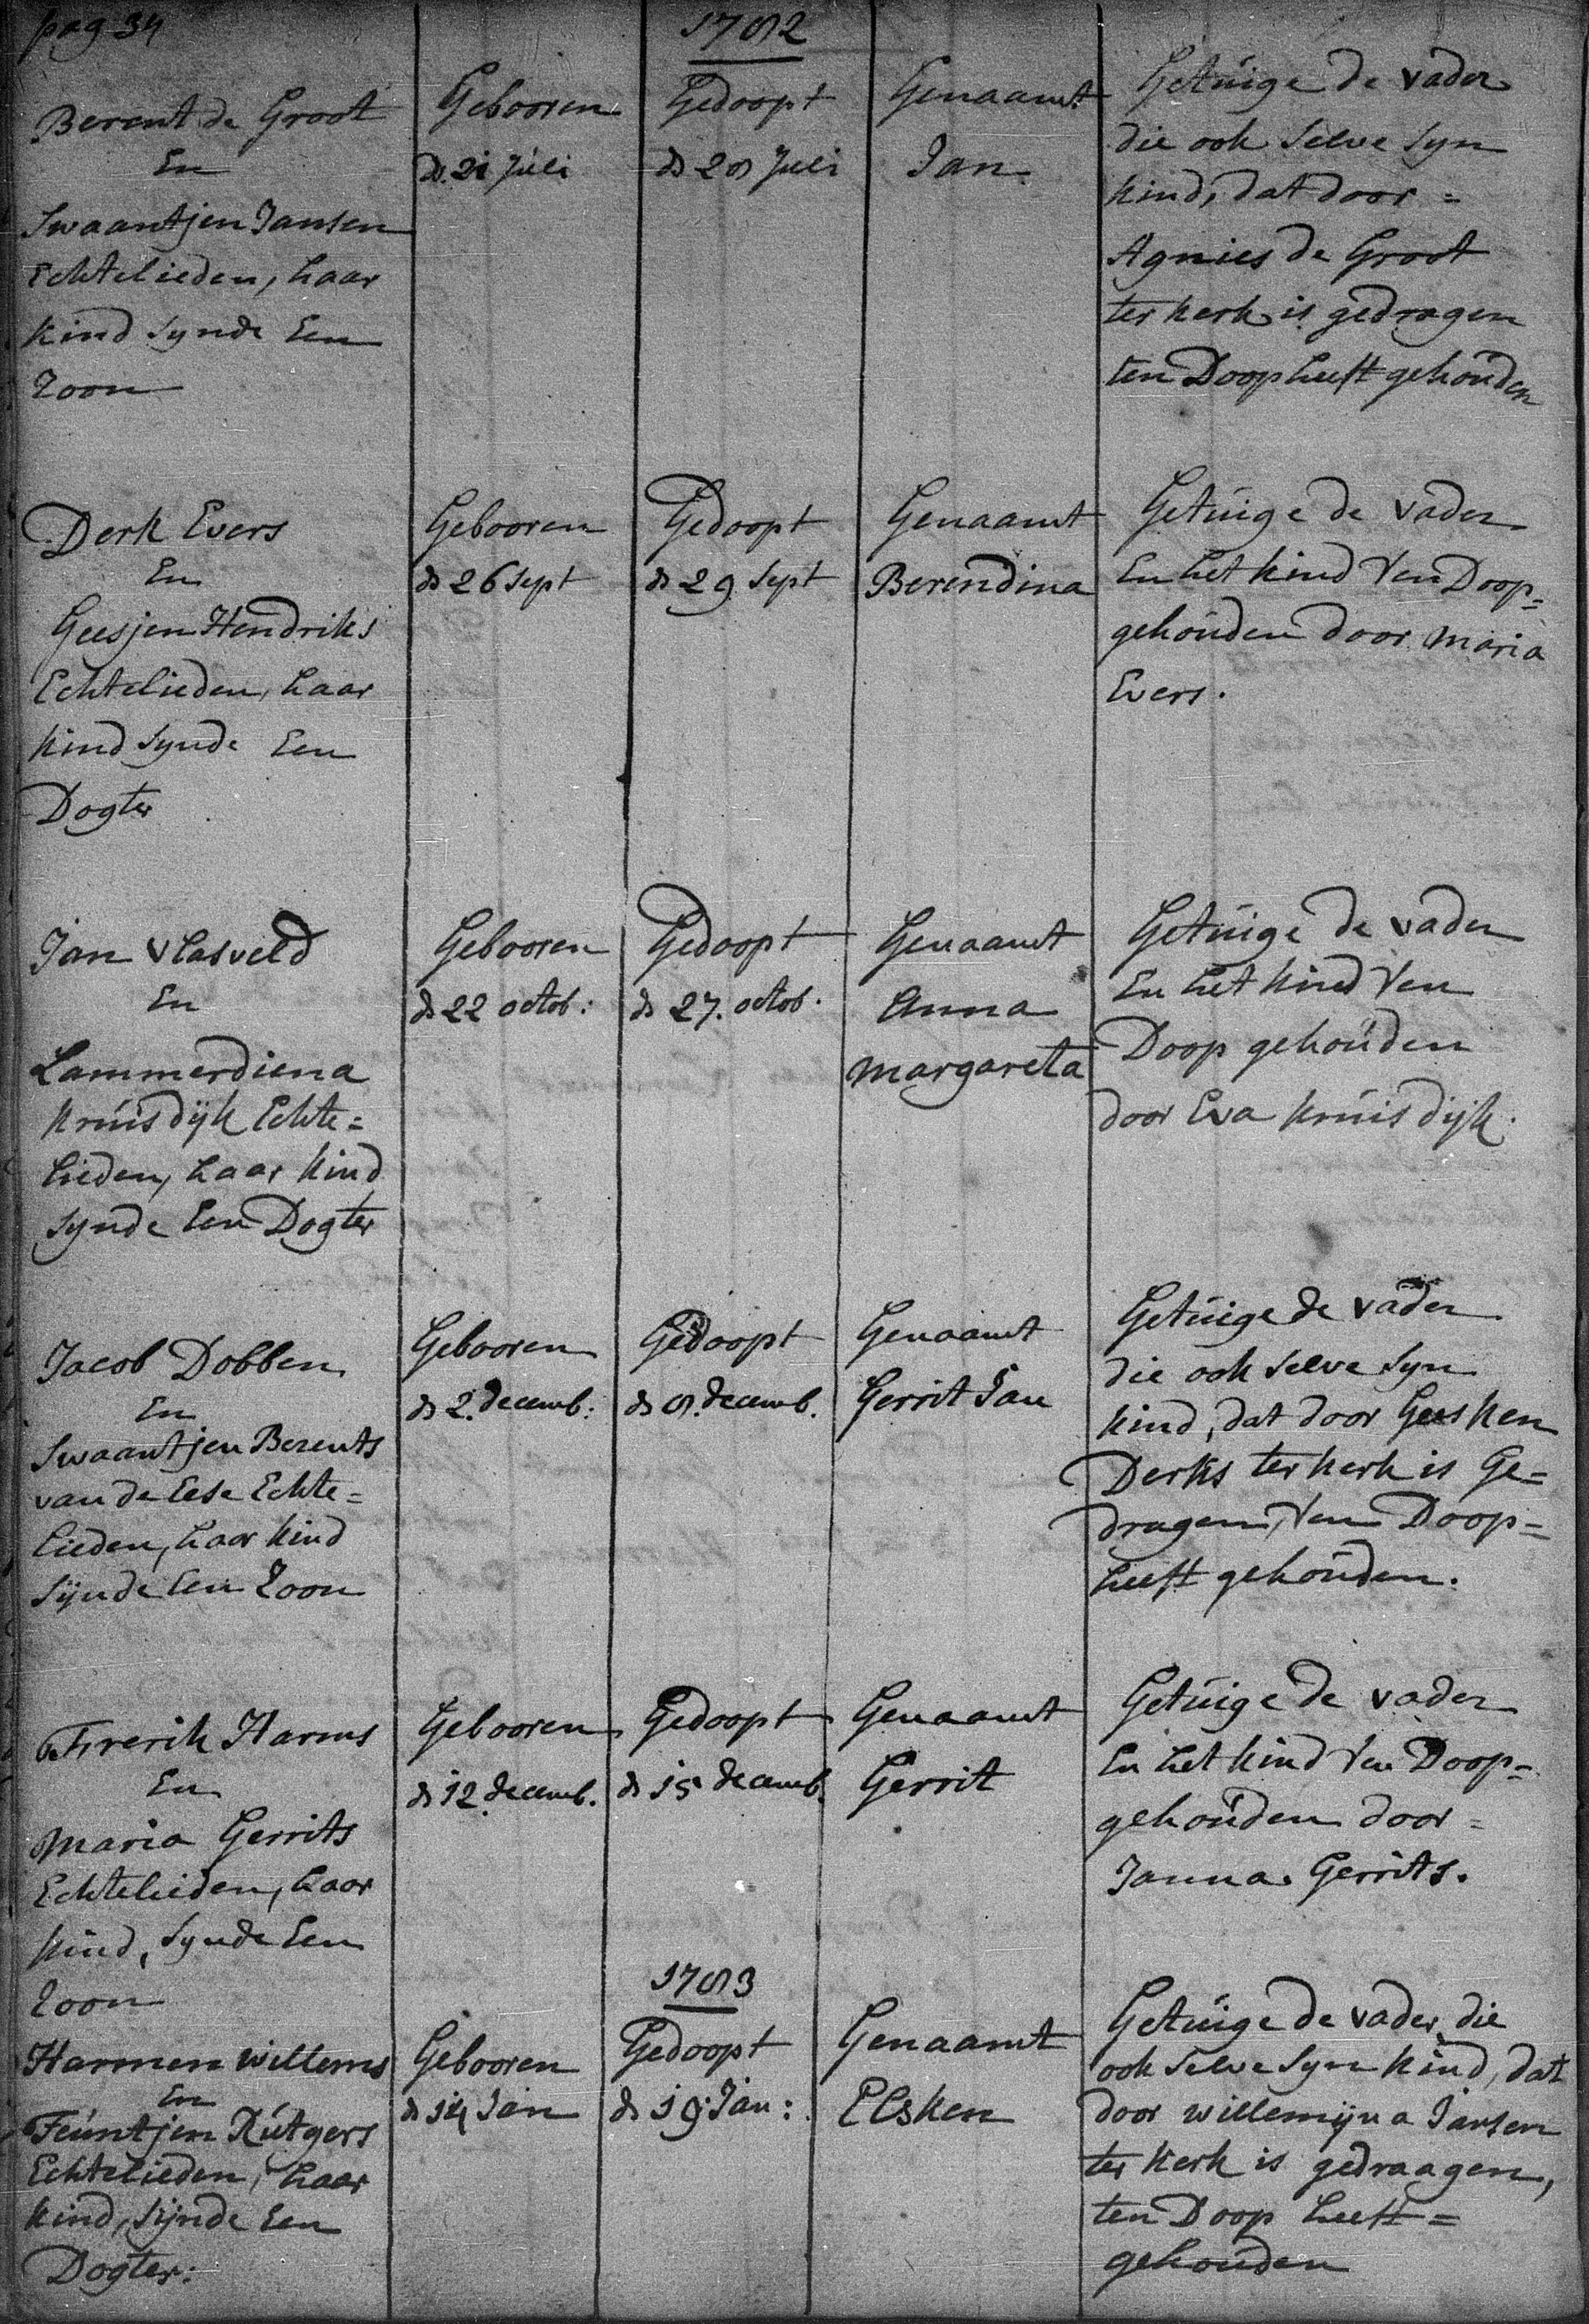 pag 34
1782
Berent de Groot
En
Swaantjen Jansen
Echtelieden, haar
kind synde Een
Zoon
Gebooren
ds. 21 Juli
Gedoopt
ds 28 Juli
Genaamt
Jan
Getuige de vader
die ook selve syn
kind, dat door =
Agnies de Groot
ter kerk is gedragen
ten Doop heeft gehouden
Derk Evers
En
Geesjen Hendriks
Echtelieden, haar
kind synde Een
Dogter
Gebooren
ds 26 Sept
Gedoopt
ds 29 Sept
Genaamt
Berendina
Getuige de vader
En het kind ten Doop=
gehouden door Maria
Evers.
Jan Vlasveld
En
Lammerdiena
Kruisdijk Echte=
lieden, haar kind
synde Een Dogter
Gebooren
ds 22 octob:
Gedoopt
ds 27. octob.
Genaamt
Anna
Margareta
Getuige de vader
En het kind ten
Doop gehouden
door Eva Kruisdijk.
Jacob Dobben
En
Swaantjen Berents
van de Eese Echte=
lieden, haar kind
sijnde Een Zoon
Gebooren
ds 2. decemb:
Gedoopt
ds 8. decemb.
Genaamt
Gerrit Jan
Getuige de vader
die ook selve syn
kind, dat door Gesken
Derks ter kerk is Ge=
dragen, ten Doop=
heeft gehouden.
Frerik Harms
En
Maria Gerrits
Echtelieden, haar
kind, synde Een
Zoon
Gebooren
ds 12. decemb.
Gedoopt
ds 15 decemb.
Genaamt
Gerrit
Getuige de vader
En het kind ten Doop=
gehouden door =
Janna Gerrits.
1783
Harmen Willems
En
Feuntjen Rutgers
Echtelieden, haar
kind, sijnde Een
Dogter:
Gebooren
ds 14 Jan
Gedoopt
ds 19 Jan:
Genaamt
Elsken
Getuige de vader, die
ook selve syn kind, dat
door Willemijna Jansen
ter kerk is gedraagen,
ten Doop heeft=
gehouden